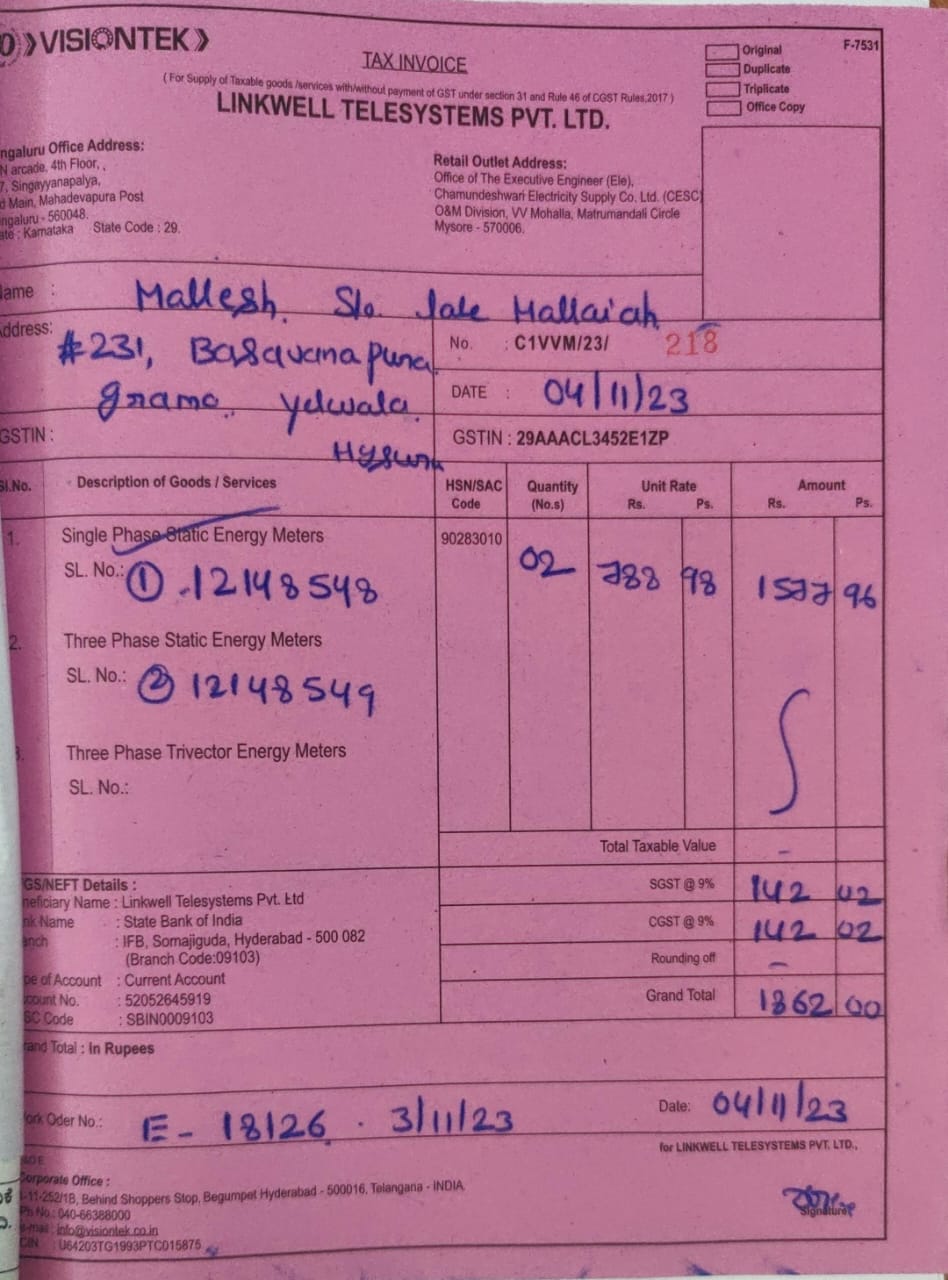 VISIONTEK
TAX INVOICE
( For Supply of Taxable goods /services with/without payment of GST under section 31 and Rule 46 of CGST Rules,2017 )
LINKWELL TELESYSTEMS PVT. LTD.
Original
Duplicate
Triplicate
Office Copy
F-7531
ngaluru Office Address:
N arcade, 4th Floor, ,
7, Singayyanapalya,
Main, Mahadevapura Post
ngaluru - 560048.
ate : Karnataka State Code : 29.
Retail Outlet Address:
Office of The Executive Engineer (Ele),
Chamundeshwari Electricity Supply Co. Ltd. (CESC)
O&M Division, VV Mohalla, Matrumandali Circle
Mysore - 570006.
ame : Mallesh. S/o. late Mallaiah
ddress: #231, Basavanapura
grama. yelwala.
Mysuru
No. : C1VVM/23/ 218
DATE : 04/11/23
GSTIN :
GSTIN : 29AAACL3452E1ZP
Sl.No. Description of Goods / Services HSN/SAC Code Quantity (No.s) Unit Rate Rs. Ps. Amount Rs. Ps.
1. Single Phase Static Energy Meters 90283010 02 788 98 1577 96
SL. No.: ① 12148548
2. Three Phase Static Energy Meters
SL. No.: ② 12148549
3. Three Phase Trivector Energy Meters
SL. No.:
Total Taxable Value -
SGST @ 9% 142 02
CGST @ 9% 142 02
Rounding off -
Grand Total 1862 00
GS/NEFT Details :
neficiary Name : Linkwell Telesystems Pvt. Ltd
nk Name : State Bank of India
anch : IFB, Somajiguda, Hyderabad - 500 082
(Branch Code:09103)
pe of Account : Current Account
count No. : 52052645919
SC Code : SBIN0009103
rand Total : In Rupees
ork Oder No.: E - 18126 . 3/11/23
Date: 04/11/23
for LINKWELL TELESYSTEMS PVT. LTD.,
Signature
Corporate Office :
-11-252/1B, Behind Shoppers Stop, Begumpet Hyderabad - 500016, Telangana - INDIA
Ph No.: 040-66388000
e-mail : info@visiontek.co.in
CIN : U64203TG1993PTC015875